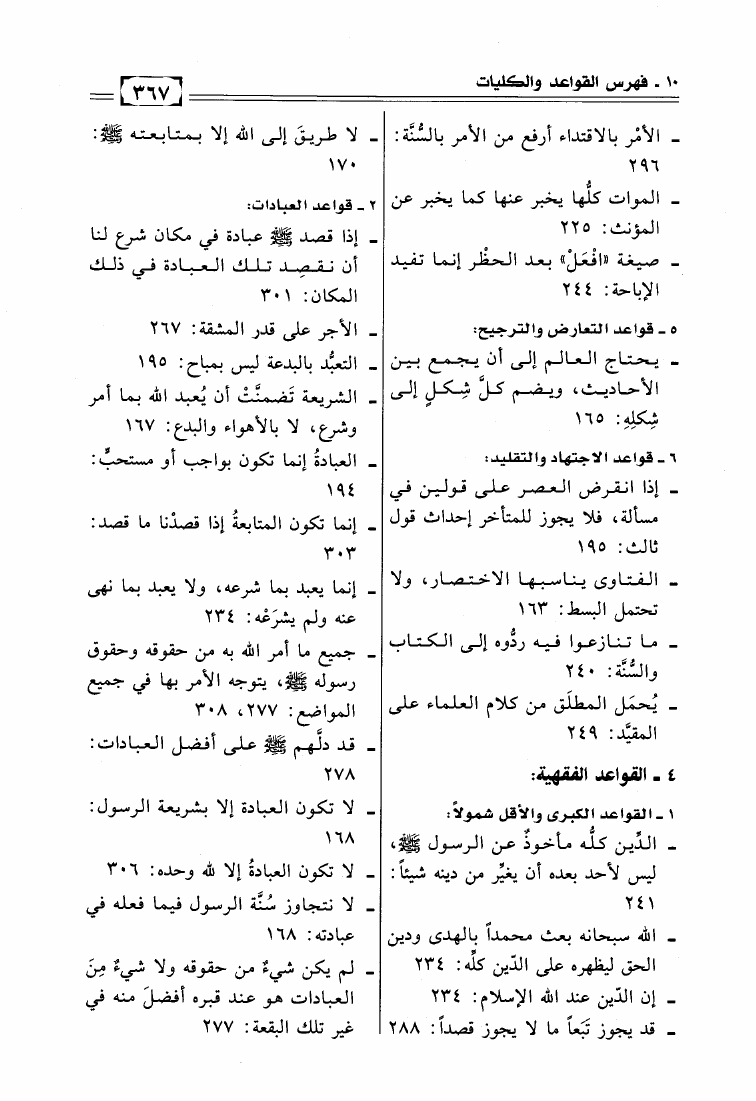 ١٠ ـ فهرس القواعد والكليات
٣٦٧
ـ الأمْر بالاقتداء أرفع من الأمر بالسُّنَّة:
٢٩٦
ـ الموات كلُّها يخبر عنها كما يخبر عن
المؤنث: ٢٢٥
ـ صيغة «افْعَلْ» بعد الحظْر إنما تفيد
الإباحة: ٢٤٤
٥ ـ قواعد التعارض والترجيح:
ـ يحتاج العالم إلى أن يجمع بين
الأحاديث، ويضم كلَّ شكلٍ إلى
شكلِهِ: ١٦٥
٦ ـ قواعد الاجتهاد والتقليد:
ـ إذا انقرض العصر على قولين في
مسألة، فلا يجوز للمتأخر إحداث قول
ثالث: ١٩٥
ـ الفتاوى يناسبها الاختصار، ولا
تحتمل البسط: ١٦٣
ـ ما تنازعوا فيه ردُّوه إلى الكتاب
والسُّنَّة: ٢٤٠
ـ يُحمَل المطلَق من كلام العلماء على
المقيَّد: ٢٤٩
٤ ـ القواعد الفقهية:
١ ـ القواعد الكبرى والأقل شمولاً:
ـ الدِّين كلُّه مأخوذٌ عن الرسول ﷺ،
ليس لأحد بعده أن يغيِّر من دينه شيئاً:
٢٤١
ـ الله سبحانه بعث محمداً بالهدى ودين
الحق ليظهره على الدّين كلِّه: ٢٣٤
ـ إن الدّين عند الله الإسلام: ٢٣٤
ـ قد يجوز تَبَعاً ما لا يجوز قصداً: ٢٨٨
ـ لا طريقَ إلى الله إلا بمتابعته ﷺ:
١٧٠
٢ ـ قواعد العبادات:
ـ إذا قصد ﷺ عبادة في مكان شرع لنا
أن نقصد تلك العبادة في ذلك
المكان: ٣٠١
ـ الأجر على قدر المشقة: ٢٦٧
ـ التعبُّد بالبدعة ليس بمباح: ١٩٥
ـ الشريعة تَضمنَّتْ أن يُعبد الله بما أمر
وشرع، لا بالأهواء والبدع: ١٦٧
ـ العبادةُ إنما تكون بواجب أو مستحبٍّ:
١٩٤
ـ إنما تكون المتابعةُ إذا قصدْنا ما قصد:
٣٠٣
ـ إنما يعبد بما شرعه، ولا يعبد بما نهى
عنه ولم يشرَعْه: ٢٣٤
ـ جميع ما أمر الله به من حقوقه وحقوق
رسوله ﷺ، يتوجه الأمر بها في جميع
المواضع: ٢٧٧، ٣٠٨
ـ قد دلَّهم ﷺ على أفضل العبادات:
٢٧٨
ـ لا تكون العبادة إلا بشريعة الرسول:
١٦٨
ـ لا تكون العبادةُ إلا لله وحده: ٣٠٦
ـ لا نتجاوز سُنَّة الرسول فيما فعله في
عبادته: ١٦٨
ـ لم يكن شيءٌ من حقوقه ولا شيءٌ مِنَ
العبادات هو عند قبره أفضلَ منه في
غير تلك البقعة: ٢٧٧